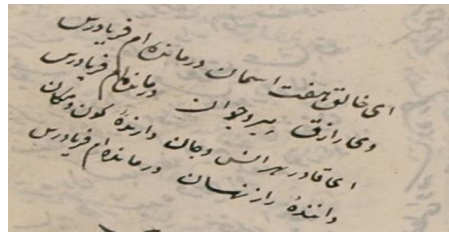 ای خالق هفت اسمان درمانده‌ام فریادرس
وی رازق پیر و جوان درمانده‌ام فریادرس
ای قادر هر انس و جان دارندهٔ کون و مکان
دانندهٔ راز نهان درمانده‌ام فریادرس